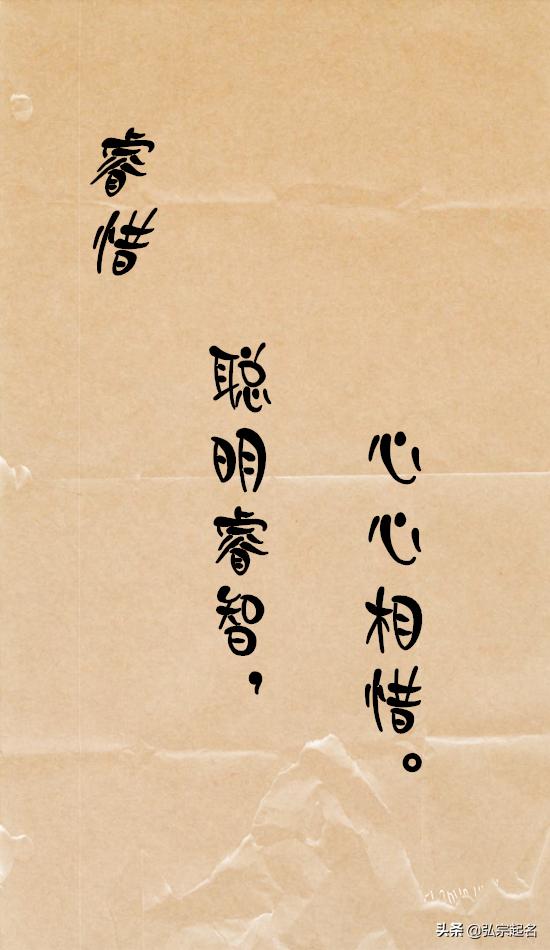 睿惜
聪明睿智，
心心相惜。
头条 @弘宗起名